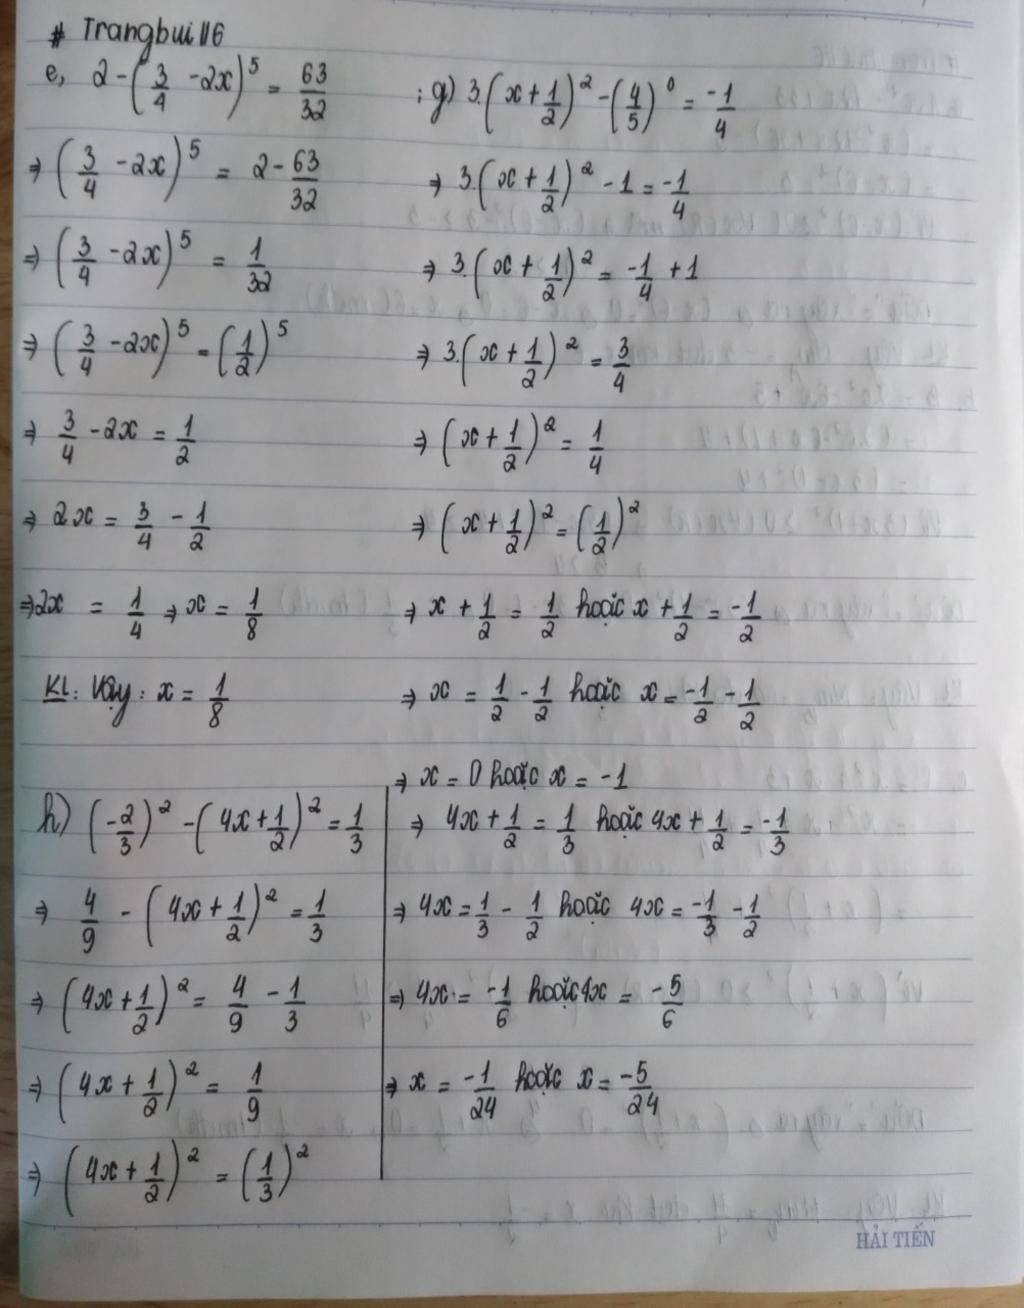 # Trangbui116
e, 2 - (3/4 - 2x)^5 = 63/32
⇒ (3/4 - 2x)^5 = 2 - 63/32
⇒ (3/4 - 2x)^5 = 1/32
⇒ (3/4 - 2x)^5 = (1/2)^5
⇒ 3/4 - 2x = 1/2
⇒ 2x = 3/4 - 1/2
⇒ 2x = 1/4 ⇒ x = 1/8
KL: Vậy: x = 1/8
; g) 3.(x + 1/2)^2 - (4/5)^0 = -1/4
⇒ 3.(x + 1/2)^2 - 1 = -1/4
⇒ 3.(x + 1/2)^2 = -1/4 + 1
⇒ 3.(x + 1/2)^2 = 3/4
⇒ (x + 1/2)^2 = 1/4
⇒ (x + 1/2)^2 = (1/2)^2
⇒ x + 1/2 = 1/2 hoặc x + 1/2 = -1/2
⇒ x = 1/2 - 1/2 hoặc x = -1/2 - 1/2
⇒ x = 0 hoặc x = -1
h) (-2/3)^2 - (4x + 1/2)^2 = 1/3
⇒ 4/9 - (4x + 1/2)^2 = 1/3
⇒ (4x + 1/2)^2 = 4/9 - 1/3
⇒ (4x + 1/2)^2 = 1/9
⇒ (4x + 1/2)^2 = (1/3)^2
⇒ 4x + 1/2 = 1/3 hoặc 4x + 1/2 = -1/3
⇒ 4x = 1/3 - 1/2 hoặc 4x = -1/3 - 1/2
⇒ 4x = -1/6 hoặc 4x = -5/6
⇒ x = -1/24 hoặc x = -5/24
HẢI TIẾN